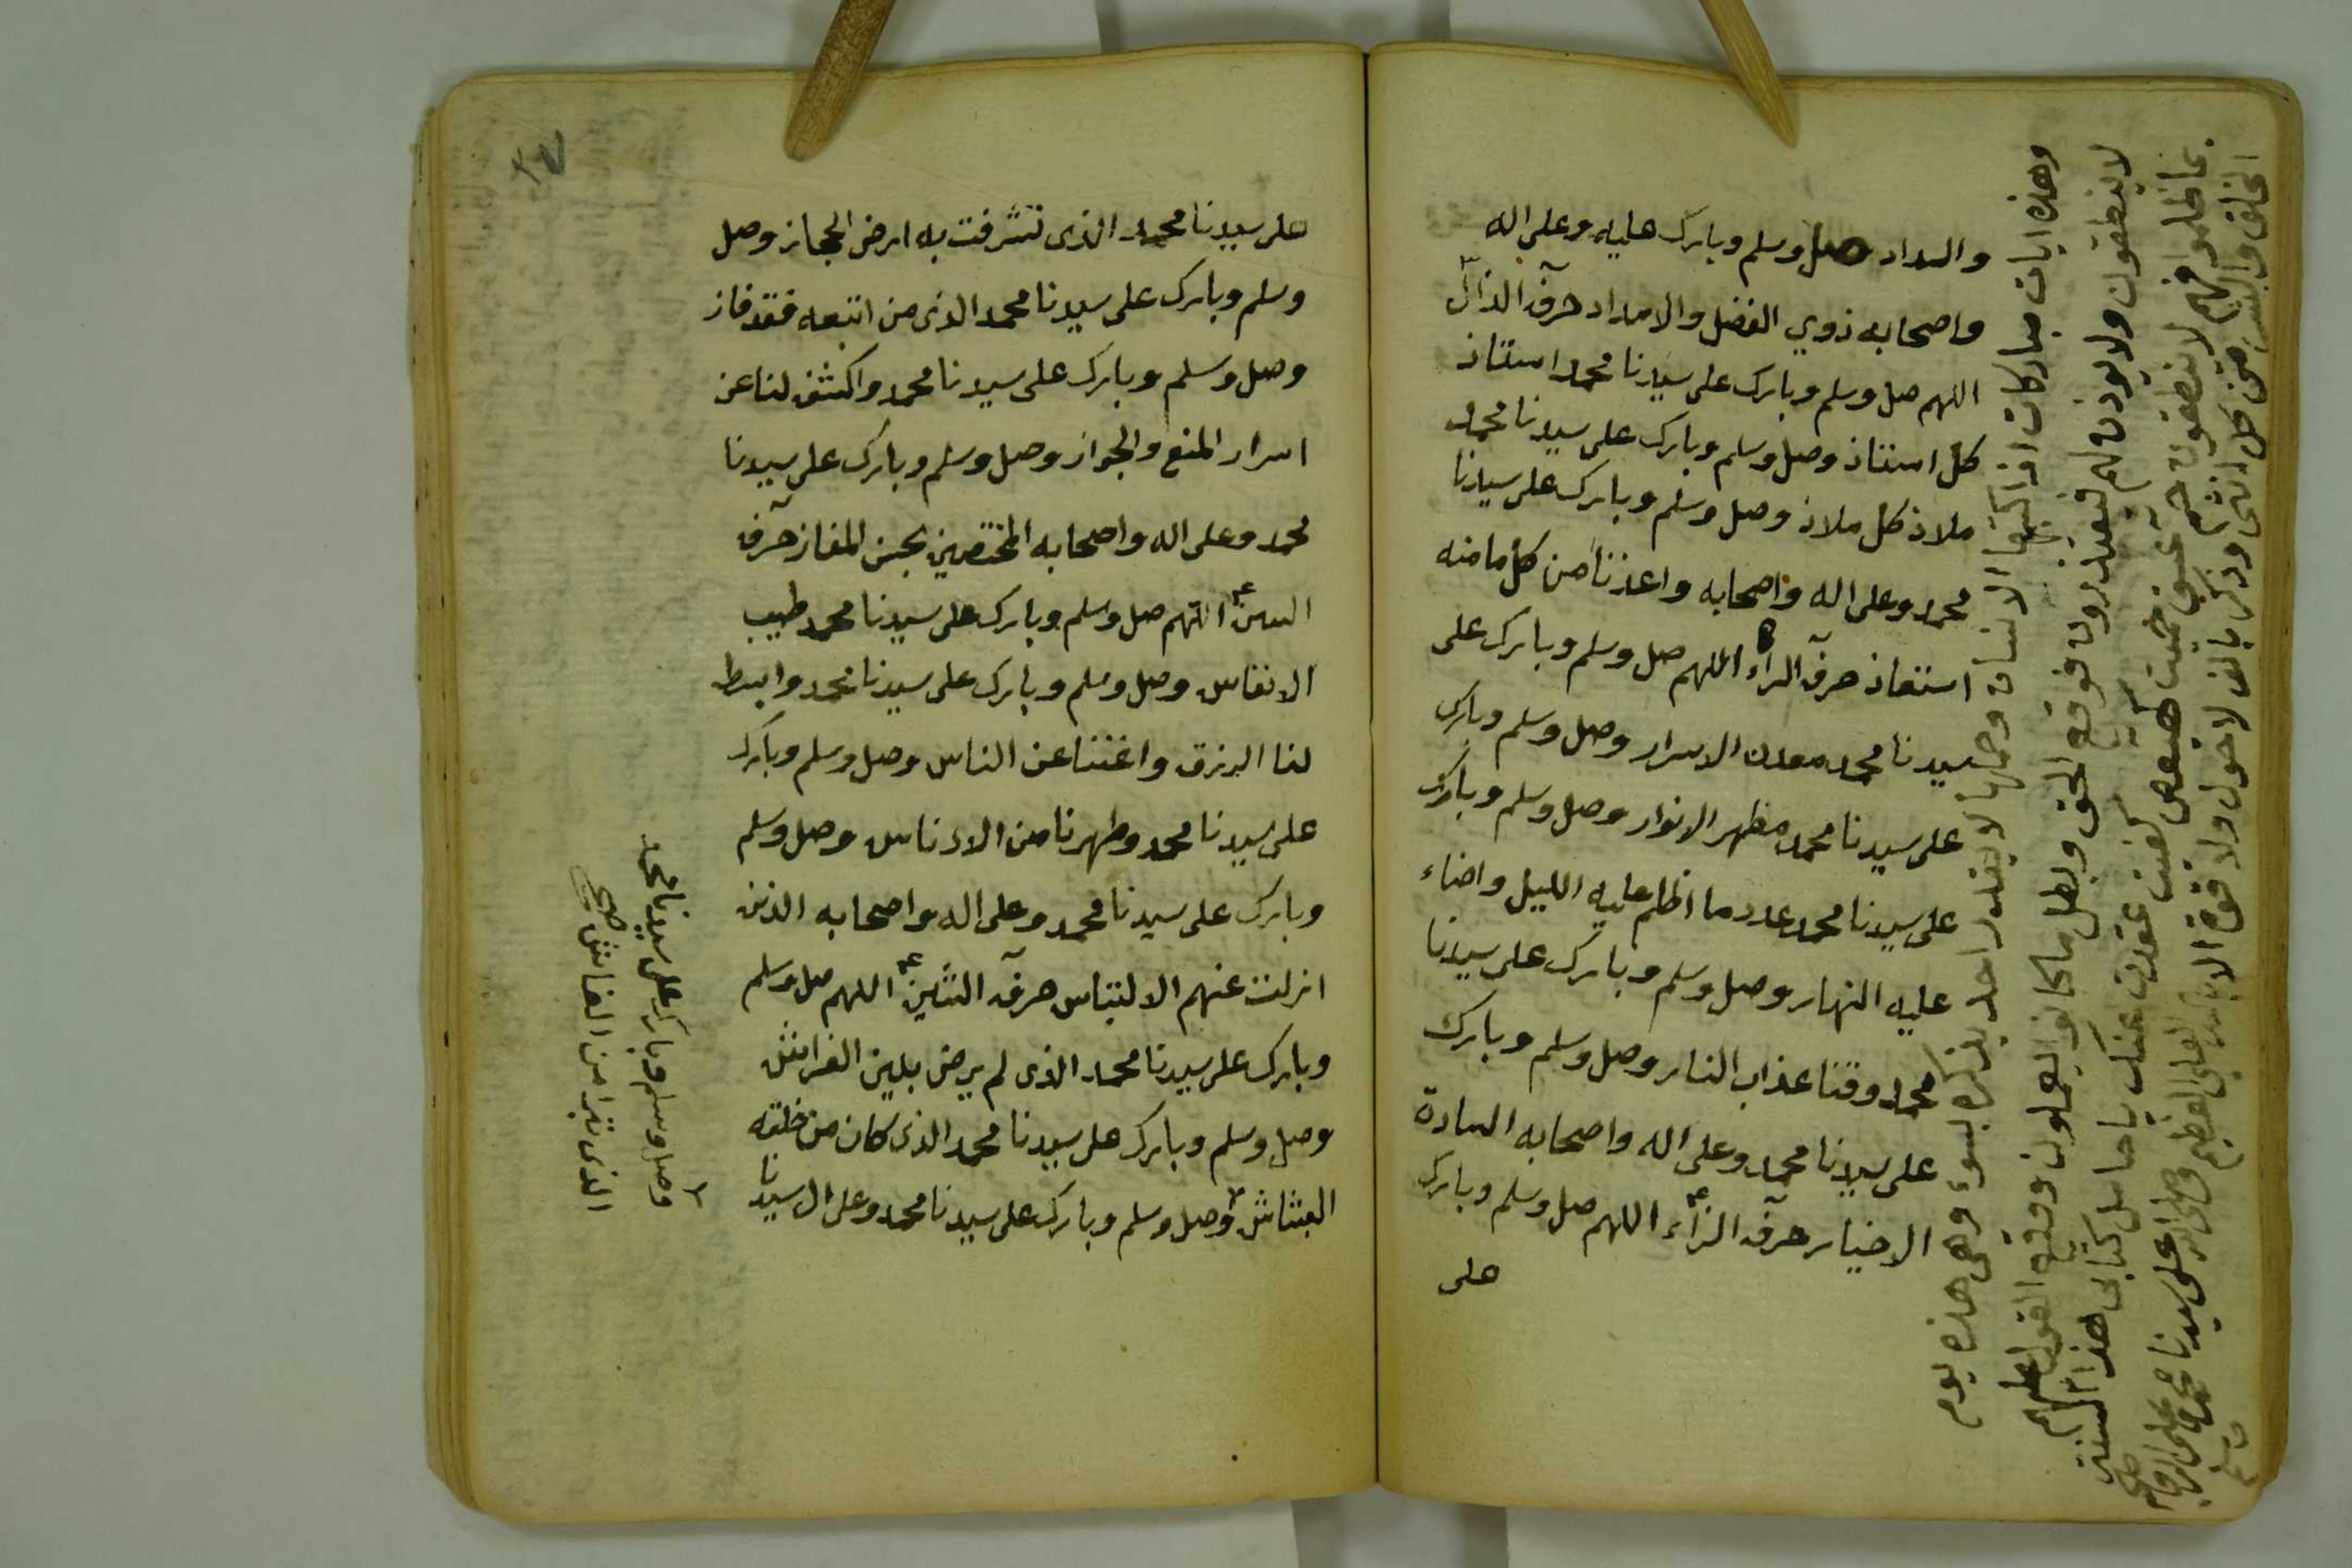 والسداد وصل وسلم وبارك عليه وعلى اله
واصحابه ذوي الفضل والامداد حرف الذال
اللهم صل وسلم وبارك على سيدنا محمد استاذ
كل استاذ وصل وسلم وبارك على سيدنا محمد
ملاذ كل ملاذ وصل وسلم وبارك على سيدنا
محمد وعلى اله واصحابه واعذنا من كل ما منه
استعاذ حرف الراء اللهم صل وسلم وبارك على
سيدنا محمد معدن الاسرار وصل وسلم وبارك
على سيدنا محمد مظهر الانوار وصل وسلم وبارك
على سيدنا محمد عدد ما اظلم عليه الليل واضاء
عليه النهار وصل وسلم وبارك على سيدنا
محمد وقنا عذاب النار وصل وسلم وبارك
على سيدنا محمد وعلى اله واصحابه السادة
الاخيار حرف الزاء اللهم صل وسلم وبارك
على
وهذه ايات مباركات اذا كتبها الانسان وحملها لا يقدر احد يذكره بسوء وهى هذه يوم
لا ينطقون ولا يوذن لهم فيعتذرون فوقع الحق وبطل ما كانوا يعملون ووقع القول عليهم
بما ظلموا فهم لا ينطقون حم عسق حميت كهيعص كفيت عقدت عنك يا حامل كتابى هذا السنة
الخلق والبشر من كل انثى وذكر بالف لا حول ولا قوة الا بالله العلي العظيم وصلى الله على سيدنا محمد وعلى اله
وسلم
على سيدنا محمد الذى تشرفت به ارض الحجاز وصل
وسلم وبارك على سيدنا محمد الذى من اتبعه فقد فاز
وصل وسلم وبارك على سيدنا محمد واكشف لنا عن
اسرار المنع والجواز وصل وسلم وبارك على سيدنا
محمد وعلى اله واصحابه المختصين بحسن المفاز حرف
السين اللهم صل وسلم وبارك على سيدنا محمد طيب
الانفاس وصل وسلم وبارك على سيدنا محمد وابسط
لنا الرزق واغننا عن الناس وصل وسلم وبارك
على سيدنا محمد وطهرنا من الادناس وصل وسلم
وبارك على سيدنا محمد وعلى اله واصحابه الذين
ازلت عنهم الالتباس حرف الشين اللهم صل وسلم
وبارك على سيدنا محمد الذى لم يرض بلين الفراش
وصل وسلم وبارك على سيدنا محمد الذى كان من خلقه
البشاش وصل وسلم وبارك على سيدنا محمد وعلى ال سيدنا
وصل وسلم وبارك على سيدنا محمد
الذى تبرا من الغاش صح